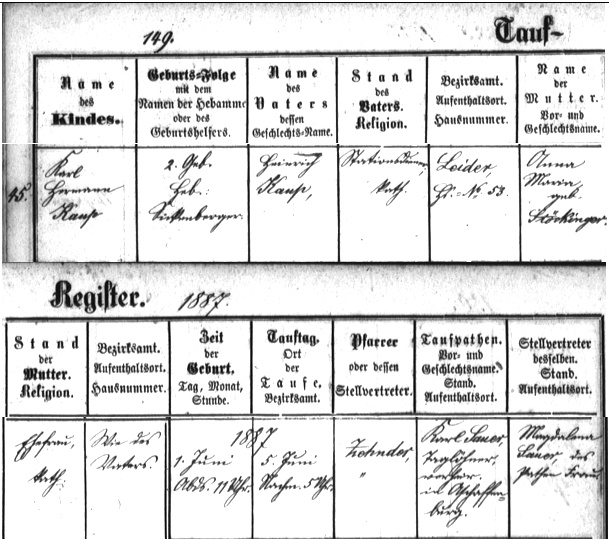 149.
Tauf-
Name
des
Kindes.
Geburts-Folge
mit dem
Namen der Hebamme
oder des
Geburtshelfers.
Name
des
Vaters
dessen
Geschlechts-Name.
Stand
des
Vaters.
Religion.
Bezirksamt.
Aufenthaltsort.
Hausnummer.
Name
der
Mutter.
Vor- und
Geschlechtsname.
45.
Karl
Hermann
Kaup
2. Geb.
Heb.:
Sickenberger.
Heinrich
Kaup,
Stationsdiener,
kath.
Leider,
Hs.-No. 53.
Anna
Maria
geb.
Stöckinger.
Register.
1887.
Stand
der
Mutter.
Religion.
Bezirksamt.
Aufenthaltsort.
Hausnummer.
Zeit
der
Geburt.
Tag, Monat,
Stunde.
Tauftag.
Ort
der
Taufe.
Bezirksamt.
Pfarrer
oder dessen
Stellvertreter.
Taufpathen.
Vor- und
Geschlechtsname.
Stand.
Aufenthaltsort.
Stellvertreter
desselben.
Stand.
Aufenthaltsort.
Ehefrau,
kath.
Wie des
Vaters.
1887
1. Juni
Abds. 11 Uhr.
5. Juni
Nachm. 5 Uhr.
Zehnder,
"
Karl Sauer,
Taglöhner,
in Aschaffen-
burg.
Magdalena
Sauer des
Pathen Frau